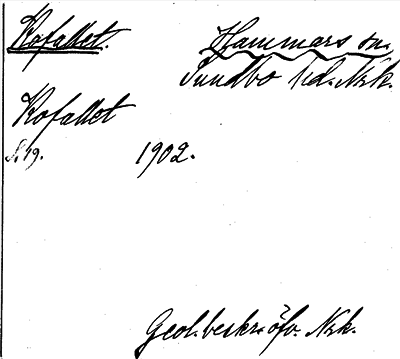 Kofallet. Hammars sn.
Sundbo hd. Nrk.
Kofallet
S. 19. 1902.
Geol. beskr. öfv. Nrk.